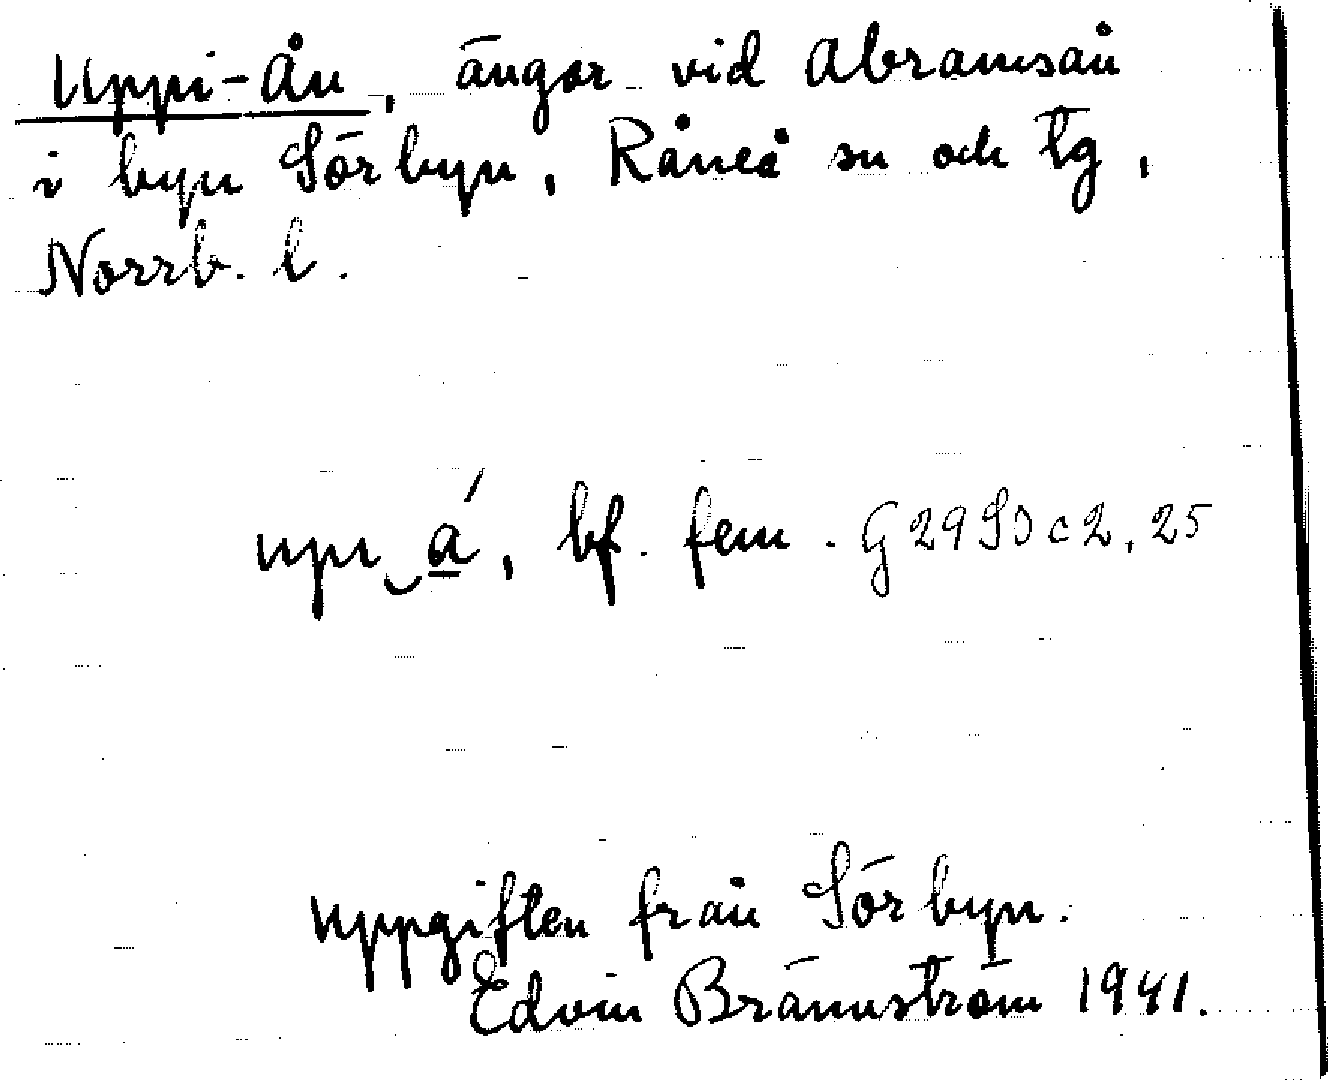 Uppi-Ån, ängar vid Abramsån
i byn Sörbyn, Råneå sn och tg,
Norrb. l.
upi‿a̲´, bf. fem. G29SDc2,25
uppgiften från Sörbyn.
Edvin Brännström 1941.